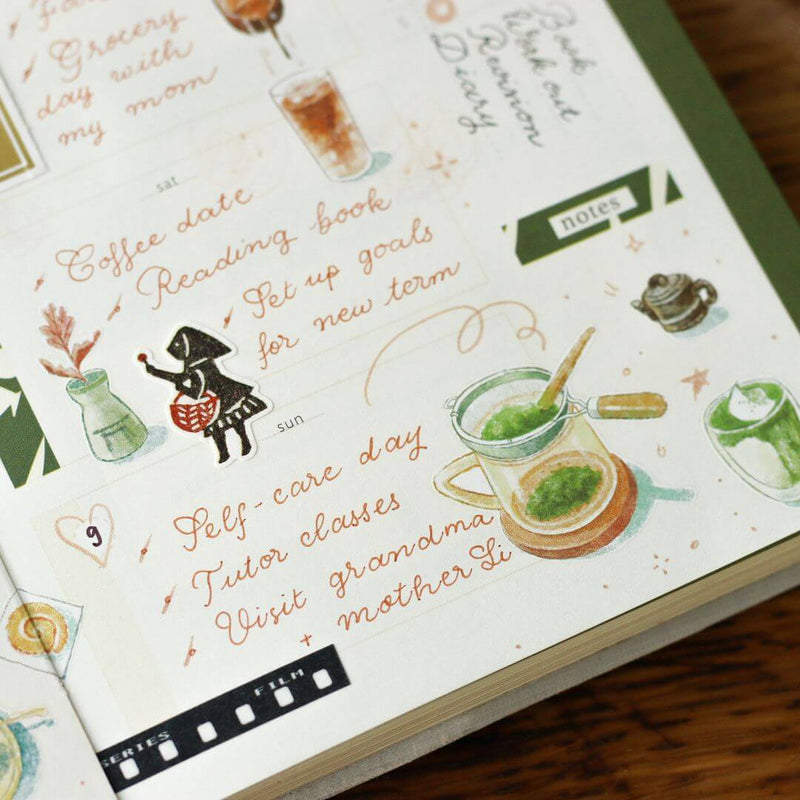 Grocery
day with
my mom
Book
Work out
Reunion
Diary
sat
Coffee date
Reading book
Set up goals
for new term
notes
sun
9
Self-care day
Tutor classes
Visit grandma
+ mother Li
SERIES FILM